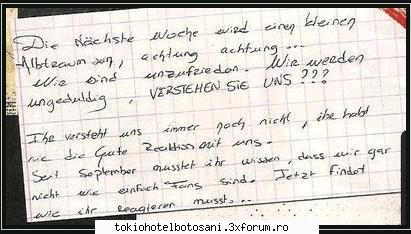 Die Nächste Woche wird einen kleinen
Albtraum sein, achtung achtung...
Wir sind unzufrieden. Wir werden
ungeduldig, VERSTEHEN SIE UNS???
Ihr versteht uns immer noch nicht, ihr habt
nie die Gute Reaktion mit uns.
Seit September musstet ihr wissen, dass wir gar
nicht wie einfach Fans sind. Jetzt findet
wie ihr reagieren musst....
tokiohotelbotosani.3xforum.ro